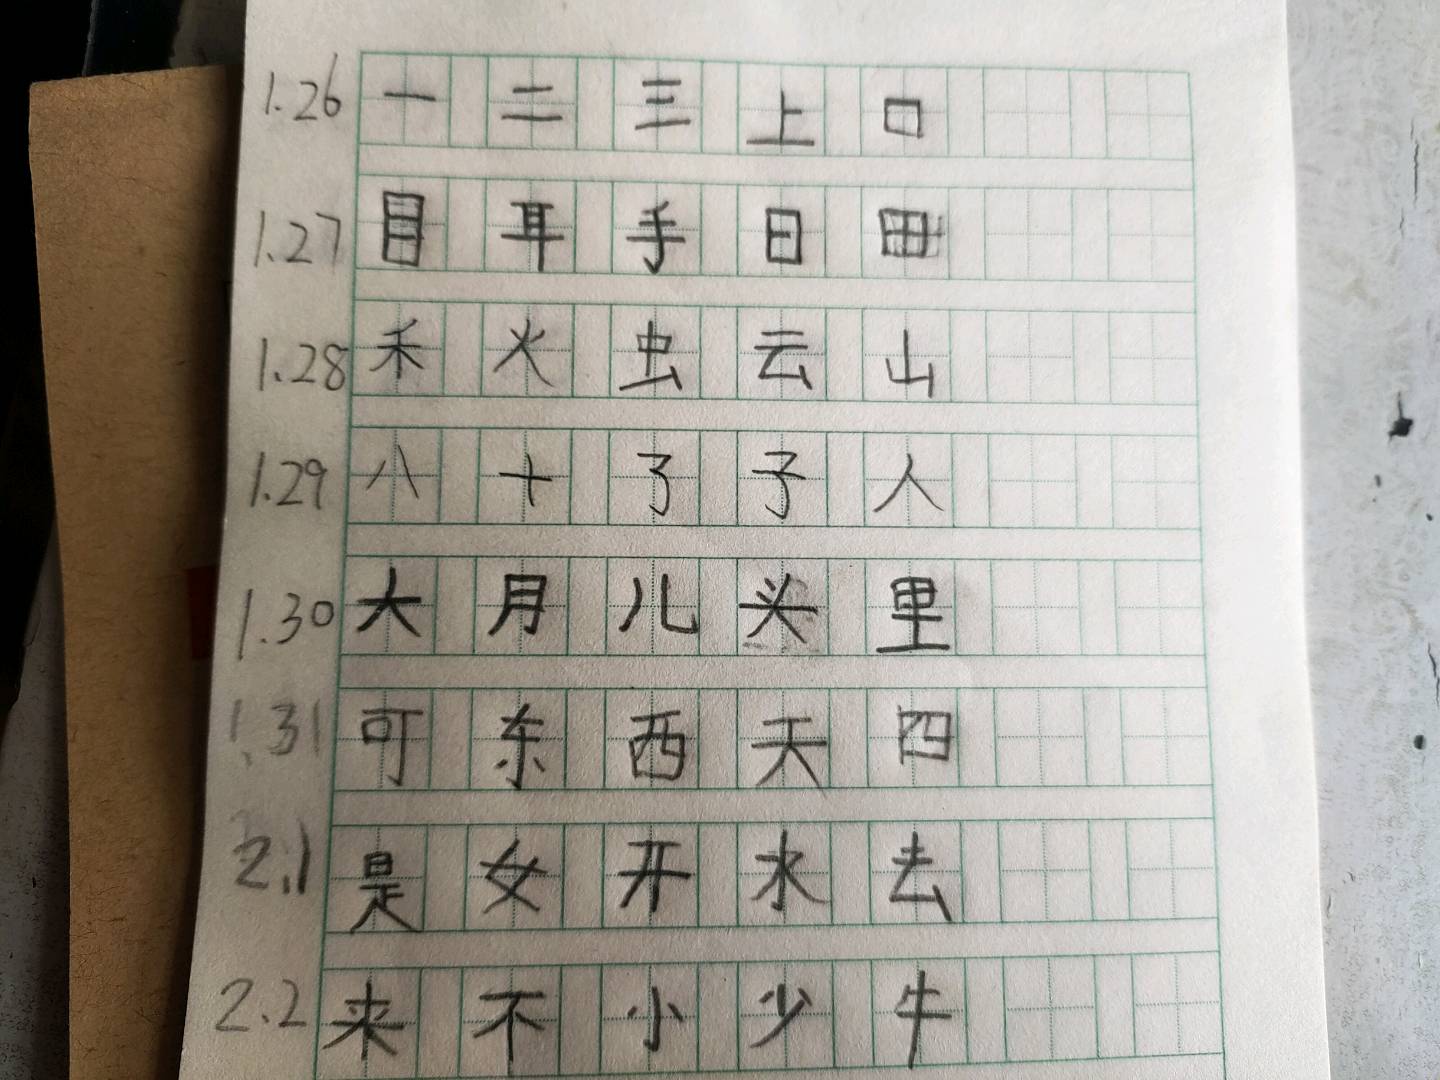 1.26 一 二 三 上 口
1.27 目 耳 手 日 田
1.28 禾 火 虫 云 山
1.29 八 十 了 子 人
1.30 大 月 儿 头 里
1.31 可 东 西 天 四
2.1 是 女 开 水 去
2.2 来 不 小 少 牛